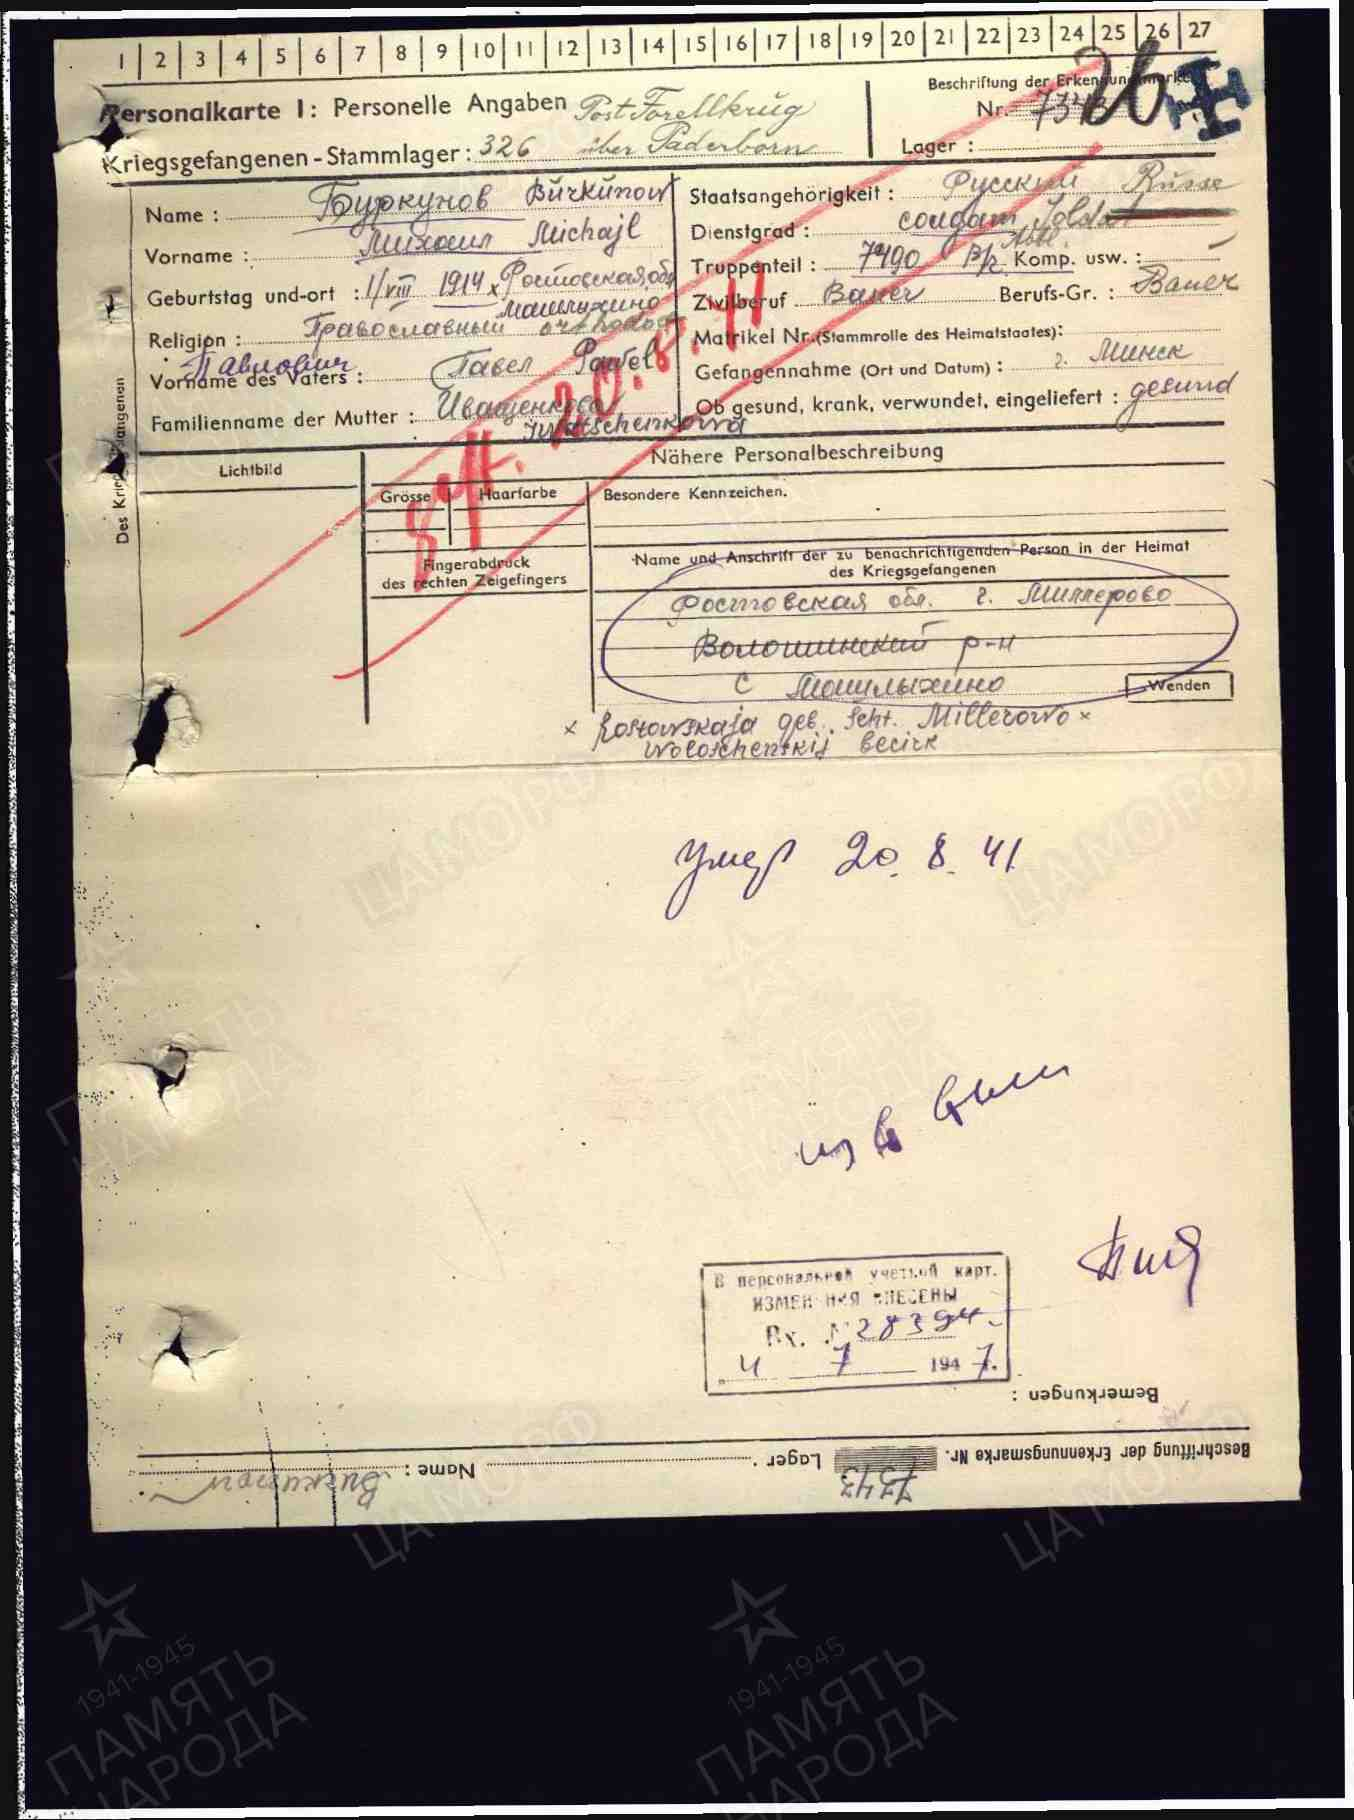 1 2 3 4 5 6 7 8 9 10 11 12 13 14 15 16 17 18 19 20 21 22 23 24 25 26 27
Personalkarte I: Personelle Angaben Post Forellkrug
Kriegsgefangenen-Stammlager: 326 über Paderborn
Beschriftung der Erkennungsmarke
Nr. 7343
26
Lager :
Name : Буркунов Burkunow
Vorname : Михаил Michajl
Geburtstag und-ort : 1/VIII 1914 x Ростовская обл
Машлыкино
Religion : Православный orthodox
Павлович
Vorname des Vaters : Павел Pawel
Familienname der Mutter : Иващенкова
Iwatschenkowa
Staatsangehörigkeit : Русский Russe
Dienstgrad : солдат Soldat
Abtl.
Truppenteil : 7490 Komp. usw. : —
Zivilberuf Bauer Berufs-Gr. : Bauer
Matrikel Nr. (Stammrolle des Heimatstaates) :
Gefangennahme (Ort und Datum) : г. Минск
Ob gesund, krank, verwundet, eingeliefert : gesund
20.8.41
Des Kriegsgefangenen
Lichtbild
Nähere Personalbeschreibung
Grösse Haarfarbe Besondere Kennzeichen.
Fingerabdruck
des rechten Zeigefingers
Name und Anschrift der zu benachrichtigenden Person in der Heimat
des Kriegsgefangenen
Ростовская обл. г. Миллерово
Волошинский р-н
с Машлыкино
Wenden
x Rostowskaja geb. Scht. Millerowo x
Woloschenskij becirk
умер 20. 8. 41
В персональной учетной карт.
ИЗМЕНЕНИЯ ВНЕСЕНЫ
Вх. № 28394
"4 7 1947.
Bemerkungen :
Beschriftung der Erkennungsmarke Nr. 7343 Lager : Name : Burkunow
ЦАМО РФ
ЦАМО РФ
ПАМЯТЬ
НАРОДА
ПАМЯТЬ
НАРОДА
ЦАМО РФ
ЦАМО РФ
1941-1945
ПАМЯТЬ
НАРОДА
1941-1945
ПАМЯТЬ
НАРОДА